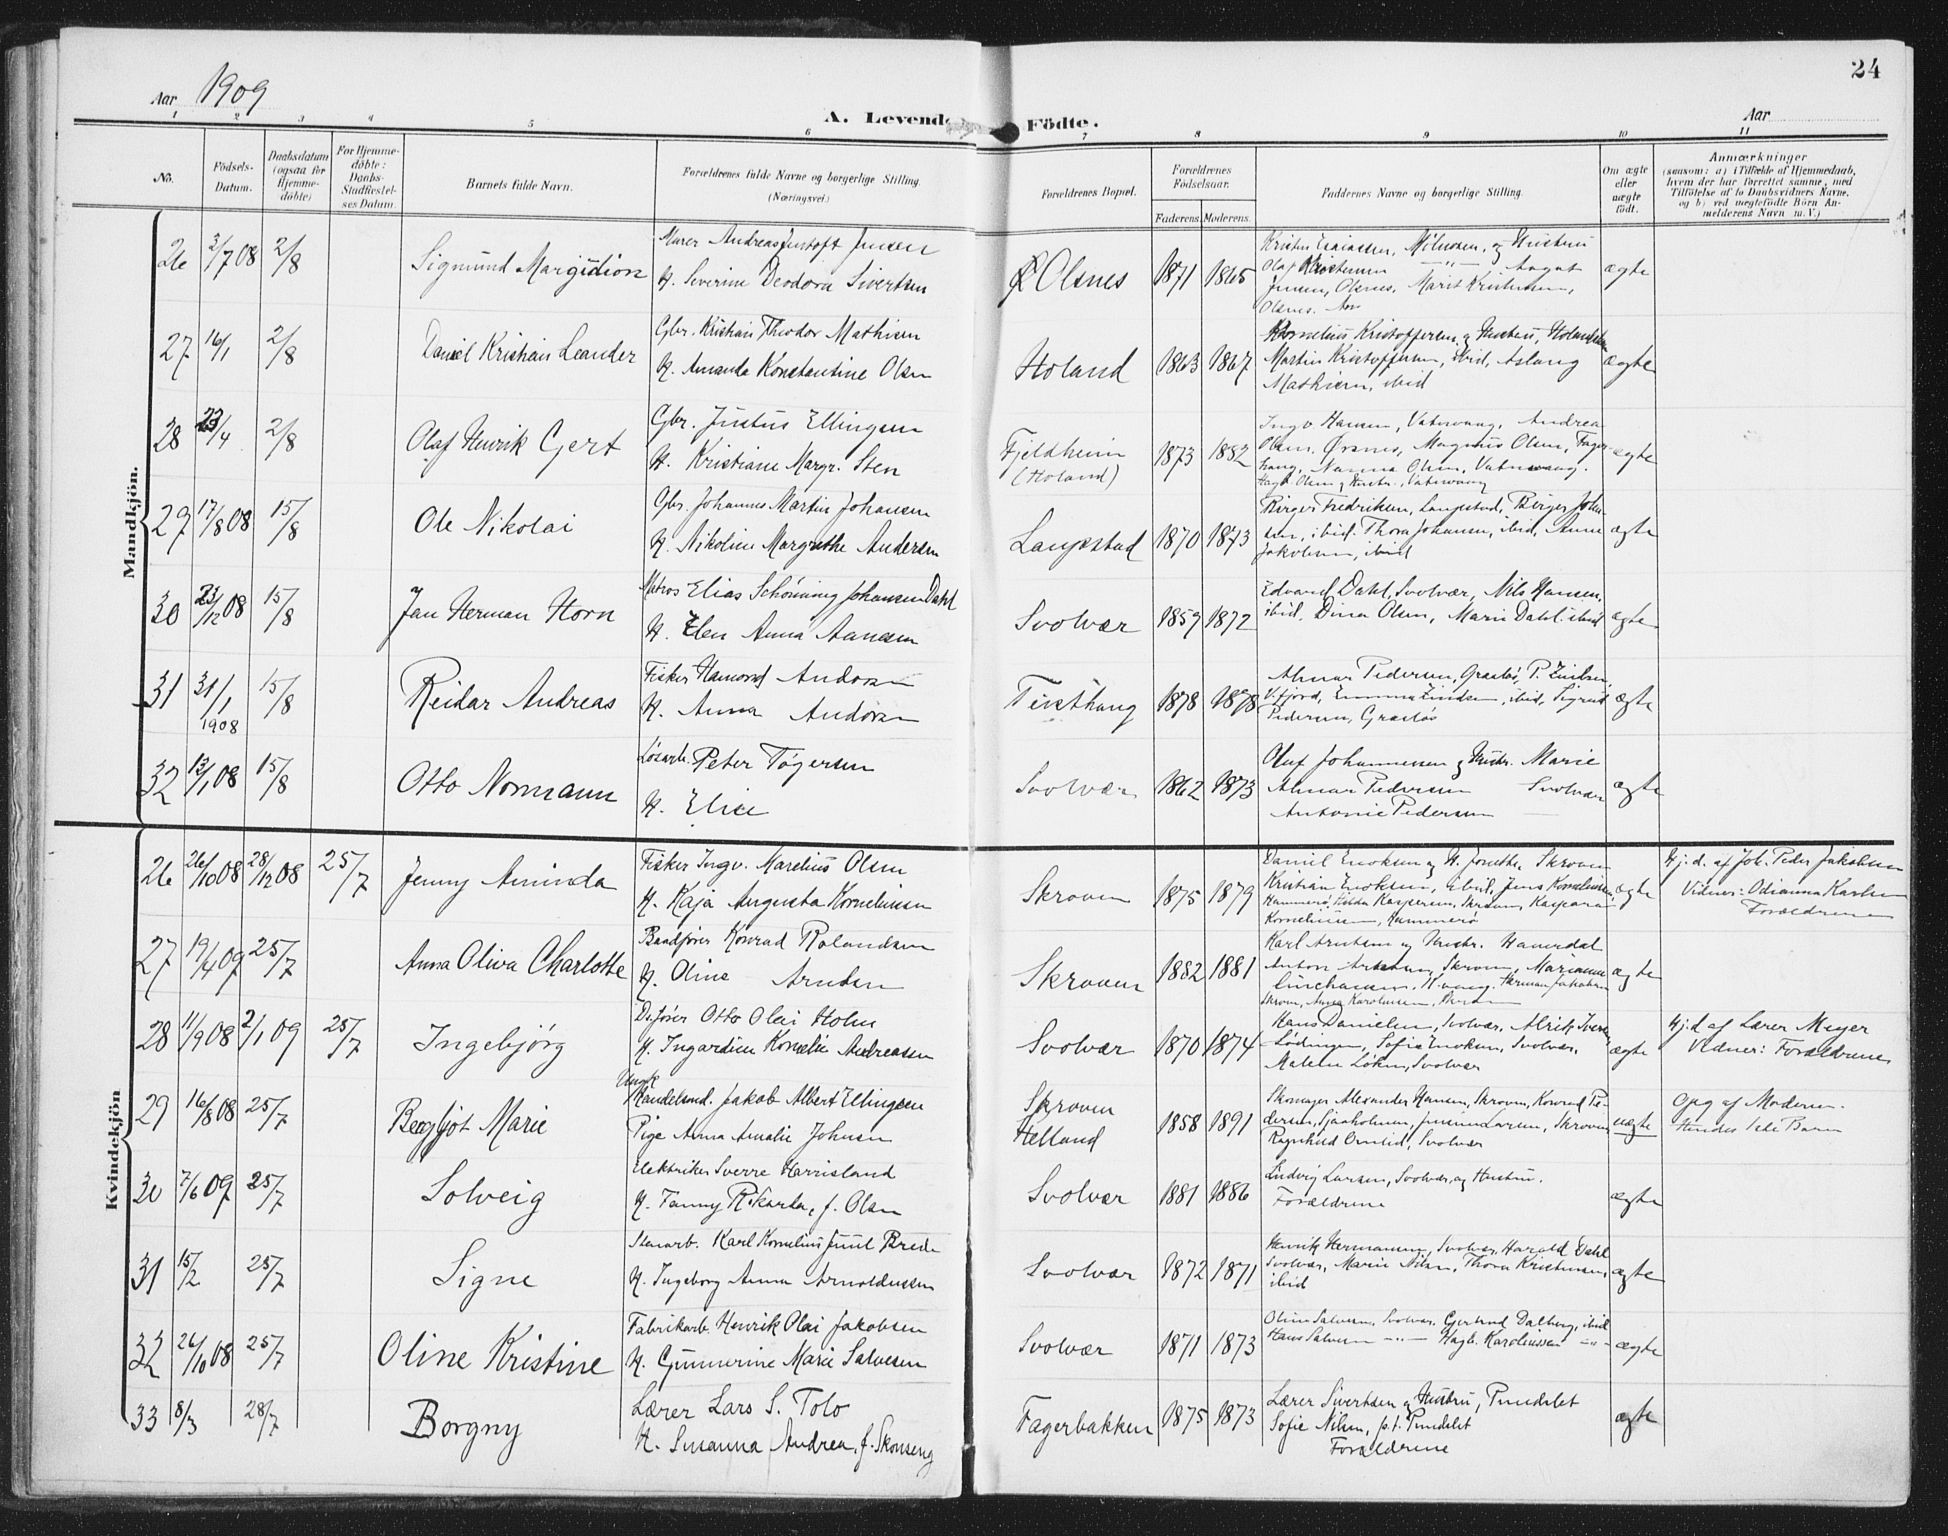 24
Aar 1909
Aar
A. Levende Födte.
1 2 3 4 5 6 7 8 9 10 11
No.
Födsels-Datum.
Daabsdatum (ogsaa for Hjemme-döbte)
For Hjemme-döbte: Daabs-Stadfæstel-ses Datum.
Barnets fulde Navn.
Forældrenes fulde Navne og borgerlige Stilling.
(Næringsvei.)
Forældrenes Bopæl.
Forældrenes Födselsaar.
Faderens. Moderens.
Faddernes Navne og borgerlige Stilling.
Om ægte eller uægte født.
Anmærkninger
(saasom: a) i Tilfælde af Hjemmedaab,
hvem der har forrettet samme, med
Tilföielse af to Daabsvidners Navne,
og b) ved uægtefödte Börn An-
melderens Navn m. V.)
Mandkjön.
26 2/7 08 2/8 Sigmund Margidion
Murer Andreas Justoft Jensen
H. Severine Deodora Sivertsen
Olsnes 1871 1865
Olsnes.
ægte
27 16/1 2/8 Daniel Kristian Leander
Gbr. Kristian Theodor Mathisen
H. Amanda Konstantine Olsen
Holand 1863 1867
Kornelius Kristoffersen og Hustru, Holandsen
Martin Kristoffersen, ibid, Aslaug
Mathisen, ibid
ægte
28 23/4 2/8 Olaf Henrik Gjert
Gbr. Justus Ellingsen
H. Kristiane Margr. Sten
Fjeldheim
(Holand)
1873 1882
Ingv Hansen, Vatervaag, Andrea
Olsen, Ørsnes, Magnus Olsen, Fager-
ægte
29 17/8 08 15/8 Ole Nikolai
Gbr. Johannes Martin Johansen
H. Nikoline Margrethe Andersen
Laupstad 1870 1873
Birger Fredriksen, Laupstad, Birger Johan-
sen, ibid. Thora Johansen, ibid, Anne
Jakobsen, ibid
ægte
30 23/12 08 15/8 Jan Herman Horn
Matros Elias Schönning Johansen Dahl
H. Elen Anna Aanesen
Svolvær 1859 1872
Edvard Dahl, Svolvær, Nils Hansen,
ibid, Dina Olsen, Marie Dahl. ibid
ægte
31 31/1 1908 15/8 Reidar Andreas
Fisker Hamond Andorsen
H. Anna Andorsen
1878 1878
Pedersen, Grasløs
ægte
32 13/1 08 15/8 Otto Normann
Løsarb. Peter Tøgersen
H. Elise
Svolvær 1862 1873
Oluf Johannessen og Hustr. Marie
Almar Pedersen Svolvær
Antonie Pedersen
ægte
Kvindekjön
26 26/10 08 28/12 08 25/7 Jenny Aminda
Fisker Ingv. Marelius Olsen
H. Kaja Augusta Kornelinsen
Skroven 1875 1879
Daniel Enoksen og H. Jonette Skroven
Kristian Enoksen, ibid, Jens Kornelinsen,
Hammerø, Hilda Kaspersen, Skroven, Kaspara
Kornelinsen, Hammerø
ægte
Hj. d. af Joh. Peder Jakobsen
Vidner: Odianna Karlsen
Forældrene
27 19/4 09 25/7 Anna Oliva Charlotte
Baadfører Konrad Rolandsen
H. Oline Arntsen
Skroven 1882 1881
Karl Arntsen og Hustr.
Anton Arntsen, Skroven, Marianne
ægte
28 11/9 08 2/1 09 25/7 Ingebjørg
Ds.fører Otto Olai Holm
H. Ingardine Kornelie Andreassen
Svolvær 1870 1874
Hans Danielsen, Svolvær, Alrik Iversen
Lødingen, Sofie Enoksen, Svolvær,
Malene Løken, Svolvær
ægte
Hj. d af Lærer Meyer
Vidner: Forældrene
29 16/8 08 25/7 Bergljot Marie
Ungk
Handelsmd. Jakob Albert Ellingsen
Pige Anna Amalie Johnsen
Skroven
Helland
1858 1891
Skomager Alexander Hansen, Skroven, Konrad Pe-
Ragnhild Arntid, Svolvær
uægte
Opg af Moderen.
Hendes 1ste Barn
30 7/6 09 25/7 Solveig
Elektriker Sverre Harrisland
H. Fanny Rikarda, f. Olsen
Svolvær 1881 1886
Ludvig Larsen, Svolvær, og Hustru.
Forældrene
ægte
31 15/2 25/7 Signe
Stenarb. Karl Kornelius Juul Brede
H. Ingeborg Anna Arnoldussen
Svolvær 1872 1871
Henrik Hermansen, Svolvær, Harald Dahl
Svolvær, Marie Nilsen, Thora Kristensen,
ibid
ægte
32 26/10 08 25/7 Oline Kristine
Fabrikarb. Henrik Olai Jakobsen
H. Gunnerine Marie Salvesen
Svolvær 1871 1873
Oline Salvesen, Svolvær, Gjertrud Dalberg, ibid
Hans Salvesen —"— Hagb. Karoliussen —"—
ægte
33 8/3 28/7 Borgny
Lærer Lars S. Tolo
H. Susanna Andrea, f. Skonseng
Fagerbakken 1875 1873
Lærer Sivertsen og Hustru, Pundslet
Sofie Nilsen, p.t. Pundslet
Forældrene
ægte